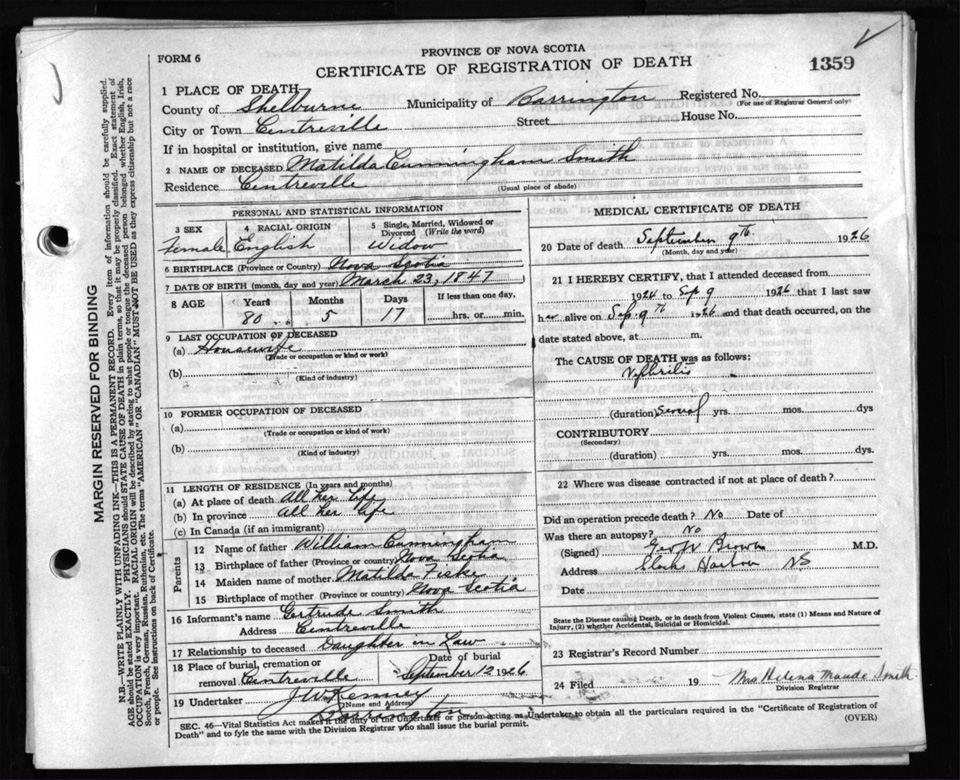 PROVINCE OF NOVA SCOTIA
FORM 6
CERTIFICATE OF REGISTRATION OF DEATH
1359
1 PLACE OF DEATH
County of Shelburne Municipality of Barrington Registered No.
(For use of Registrar General only)
City or Town Centreville Street House No.
If in hospital or institution, give name
2 NAME OF DECEASED Matilda Cunningham Smith
Residence Centreville
(Usual place of abode)
PERSONAL AND STATISTICAL INFORMATION
3 SEX 4 RACIAL ORIGIN 5 Single, Married, Widowed or Divorced (Write the word)
Female English Widow
6 BIRTHPLACE (Province or Country) Nova Scotia
7 DATE OF BIRTH (month, day and year) March 23, 1847
8 AGE Years Months Days If less than one day,
80 5 17 hrs. or min.
9 LAST OCCUPATION OF DECEASED
(a) Housewife
(Trade or occupation or kind of work)
(b)
(Kind of industry)
10 FORMER OCCUPATION OF DECEASED
(a)
(Trade or occupation or kind of work)
(b)
(Kind of industry)
11 LENGTH OF RESIDENCE (In years and months)
(a) At place of death All her life
(b) In province all her life
(c) In Canada (if an immigrant)
Parents
12 Name of father William Cunningham
13 Birthplace of father (Province or country) Nova Scotia
14 Maiden name of mother Matilda Fiske
15 Birthplace of mother (Province or country) Nova Scotia
16 Informant's name Gertrude Smith
Address Centreville
17 Relationship to deceased Daughter in Law
18 Place of burial, cremation or removal Centreville Date of burial September 12 1926
19 Undertaker J W Kenney
(Name and Address)
Barrington
MEDICAL CERTIFICATE OF DEATH
20 Date of death September 9th 1926
(Month, day and year)
21 I HEREBY CERTIFY, that I attended deceased from
1924 to Sep 9 1926 that I last saw
her alive on Sep. 9th 1926 and that death occurred, on the
date stated above, at m.
The CAUSE OF DEATH was as follows:
Nephritis
(duration) Several yrs. mos. dys
CONTRIBUTORY
(Secondary)
(duration) yrs. mos. dys.
22 Where was disease contracted if not at place of death?
Did an operation precede death? No Date of
Was there an autopsy? No
(Signed) Brown M.D.
Address Clarks Harbour NS
Date
State the Disease causing Death, or in death from Violent Causes, state (1) Means and Nature of
Injury, (2) whether Accidental, Suicidal or Homicidal.
23 Registrar's Record Number
24 Filed 19 Mrs Helena Maude Smith
Division Registrar
SEC. 46—Vital Statistics Act makes it the duty of the Undertaker or person acting as Undertaker to obtain all the particulars required in the "Certificate of Registration of
Death" and to fyle the same with the Division Registrar who shall issue the burial permit.
(OVER)
MARGIN RESERVED FOR BINDING
N.B.—WRITE PLAINLY WITH UNFADING INK—THIS IS A PERMANENT RECORD. Every item of information should be carefully supplied.
AGE should be stated EXACTLY. PHYSICIANS should STATE CAUSE OF DEATH in plain terms, so that it may be properly classified. Exact statement of
OCCUPATION is very important. RACIAL ORIGIN will be described by stating to what people or tongue the deceased person belonged whether English, Irish,
Scotch, French, German, Russian, Ruthenian, etc. The terms "AMERICAN" OR "CANADIAN" MUST NOT BE USED as they express citizenship but not a race
or people. See instructions on back of Certificate.